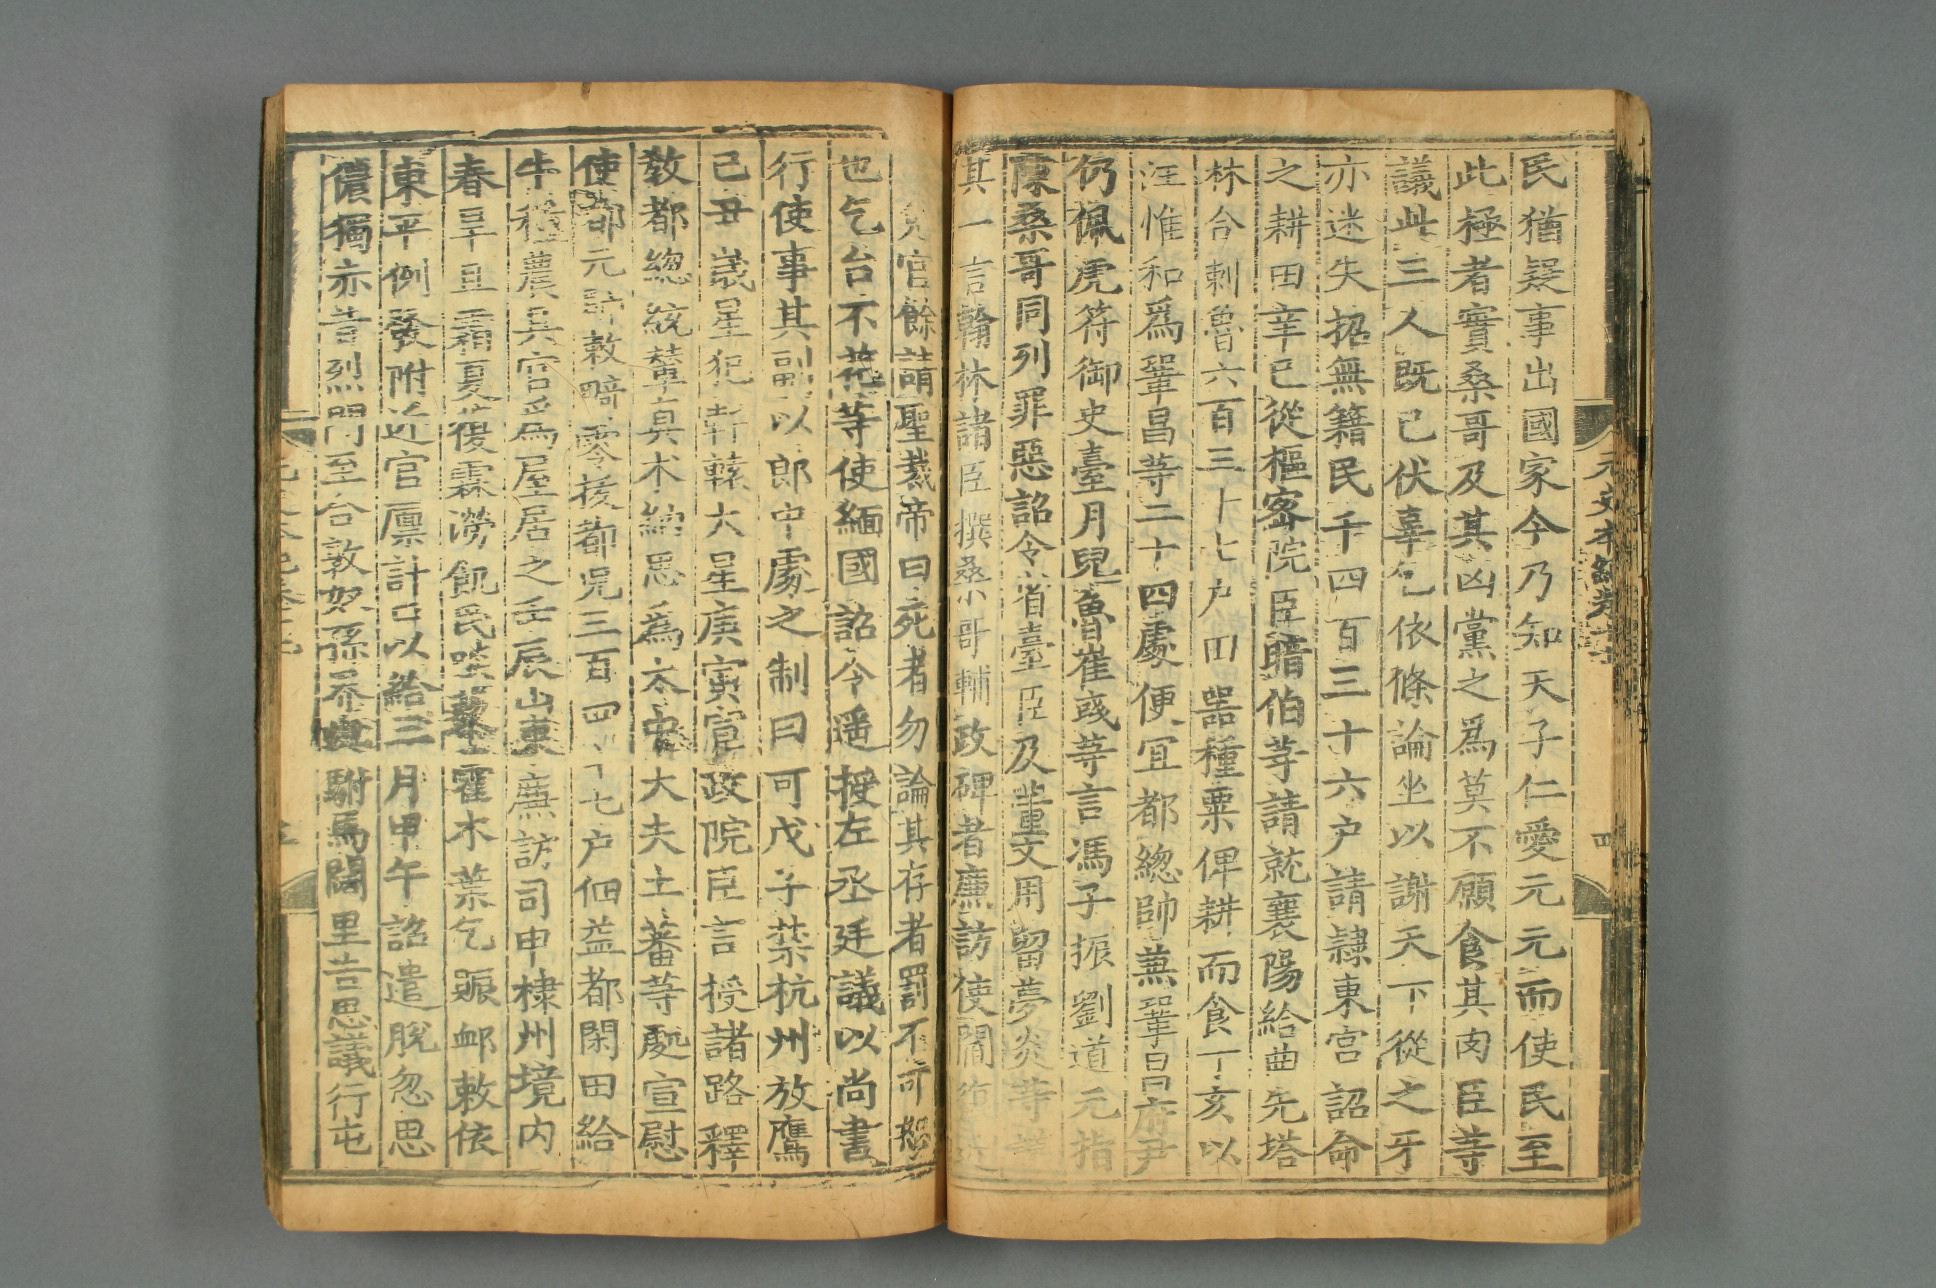 元史本紀卷十六
四
民猶疑事出國家今乃知天子仁愛元元而使民至
此極者實桑哥及其凶黨之爲莫不願食其肉臣等
議此三人既已伏辜乞依條論坐以謝天下從之牙
亦迷失招無籍民千四百三十六户請隷東宮詔命
之耕田辛巳從樞密院臣暗伯等請就襄陽給曲先塔
林合剌魯六百三十七户田噐種粟俾耕而食丁亥以
汪惟和爲鞏昌等二十四處便宜都總帥兼鞏昌府尹
仍佩虎符御史臺月兒魯崔彧等言馮子振劉道元指
陳桑哥同列罪惡詔令省臺臣及董文用留夢炎等
其一言翰林諸臣撰桑哥輔政碑者廉訪使閻
免官餘請聖裁帝曰死者勿論其存者罰不可恕
也乞台不花等使緬國詔令遥授左丞廷議以尚書
行使事其副以郎中處之制曰可戊子禁杭州放鷹
己丑歳星犯軒轅大星庚寅宣政院臣言授諸路釋
敎都總統輦真术納思爲太中大夫土蕃等䖏宣慰
使都元帥敕畸零拔都兒三百四十七户佃益都閑田給
牛種農具官爲屋居之壬辰山東廉訪司申棣州境内
春旱且霜夏復霖澇飢民啖藜藿木葉乞賑䘏敕依
東平例發附近官廪計口以給三月甲午詔遣脫忽思
儂獨赤昔烈門至合敦奴孫界與駙馬闊里吉思議行屯